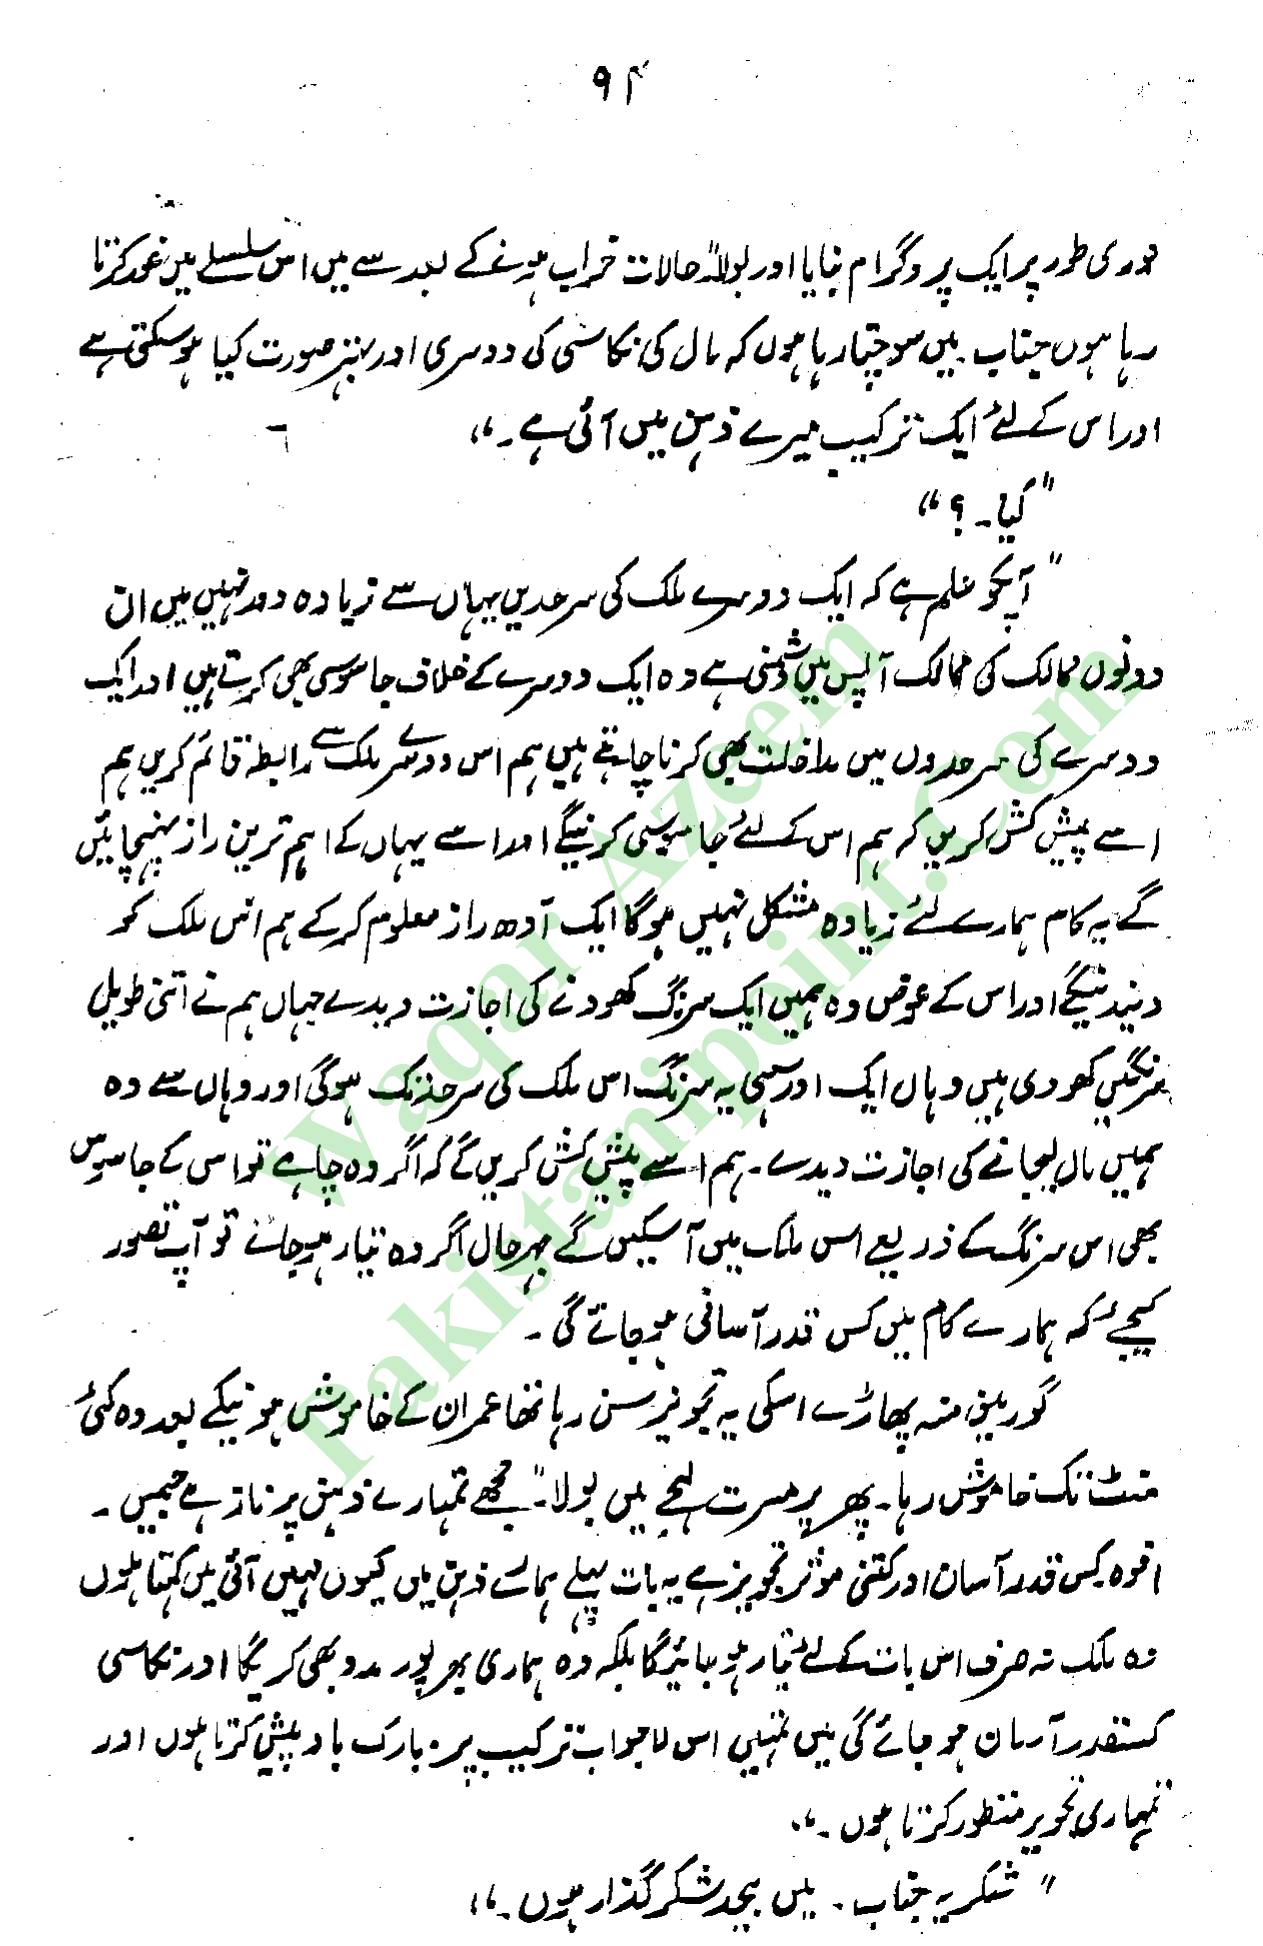 ۹۴
فوری طور پر ایک پروگرام بنایا اور بولا۔" حالات خراب ہونے کے بعد سے میں اس سلسلے میں غور کرتا
رہا ہوں جناب۔ میں سوچتا رہا ہوں کہ مال کی نکاسی کی دوسری اور بہتر صورت کیا ہو سکتی ہے
اور اس کے لئے ایک ترکیب میرے ذہن میں آئی ہے۔"
"کیا۔؟"
"آپکو علم ہے کہ ایک دوسرے ملک کی سرحدیں یہاں سے زیادہ دور نہیں ہیں ان
دونوں ممالک کی ممالک آپس میں دشمنی ہے وہ ایک دوسرے کے خلاف جاسوسی بھی کرتے ہیں اور ایک
دوسرے کی سرحدوں میں مداخلت بھی کرنا چاہتے ہیں ہم اس دوسرے ملک سے رابطہ قائم کریں ہم
اسے پیش کش کریں کہ ہم اس کے لئے جاسوسی کرینگے اور اسے یہاں کے اہم ترین راز پہنچائیں
گے یہ کام ہمارے لئے زیادہ مشکل نہیں ہوگا ایک آدھ راز معلوم کر کے ہم اس ملک کو
دیدینگے اور اس کے عوض وہ ہمیں ایک سرنگ کھودنے کی اجازت دیدے جہاں ہم نے اتنی طویل
سرنگیں کھودی ہیں وہاں ایک اور سہی یہ سرنگ اس ملک کی سرحد تک ہوگی اور وہاں سے وہ
ہمیں مال لیجانے کی اجازت دیدے۔ ہم اسے پیش کش کریں گے کہ اگر وہ چاہے تو اس کے جاسوس
بھی اس سرنگ کے ذریعے اس ملک میں آ سکیں گے بہرحال اگر وہ تیار ہو جائے تو آپ تصور
کیجیے کہ ہمارے کام میں کس قدر آسانی ہو جائے گی۔
گورین منہ پھاڑے اسکی یہ تجویز سن رہا تھا عمران کے خاموش ہونیکے بعد وہ کئی
منٹ تک خاموش رہا۔ پھر پر مسرت لہجے میں بولا۔" مجھے تمہارے ذہن پر ناز ہے جیمس۔
افوہ کس قدر آسان اور کتنی موثر تجویز ہے یہ بات پہلے ہمارے ذہن میں کیوں نہیں آئی میں کہتا ہوں
وہ ملک نہ صرف اس بات کے لئے تیار ہو جائیگا بلکہ وہ ہماری بھرپور مدد بھی کریگا اور نکاسی
کسقدر آسان ہو جائے گی میں تمہیں اس لاجواب ترکیب پر مبارک باد پیش کرتا ہوں اور
تمہاری تجویز منظور کرتا ہوں۔"
"شکریہ جناب۔ میں بیحد شکر گذار ہوں۔"
Waqar Azeem
Pakistanipoint.Com